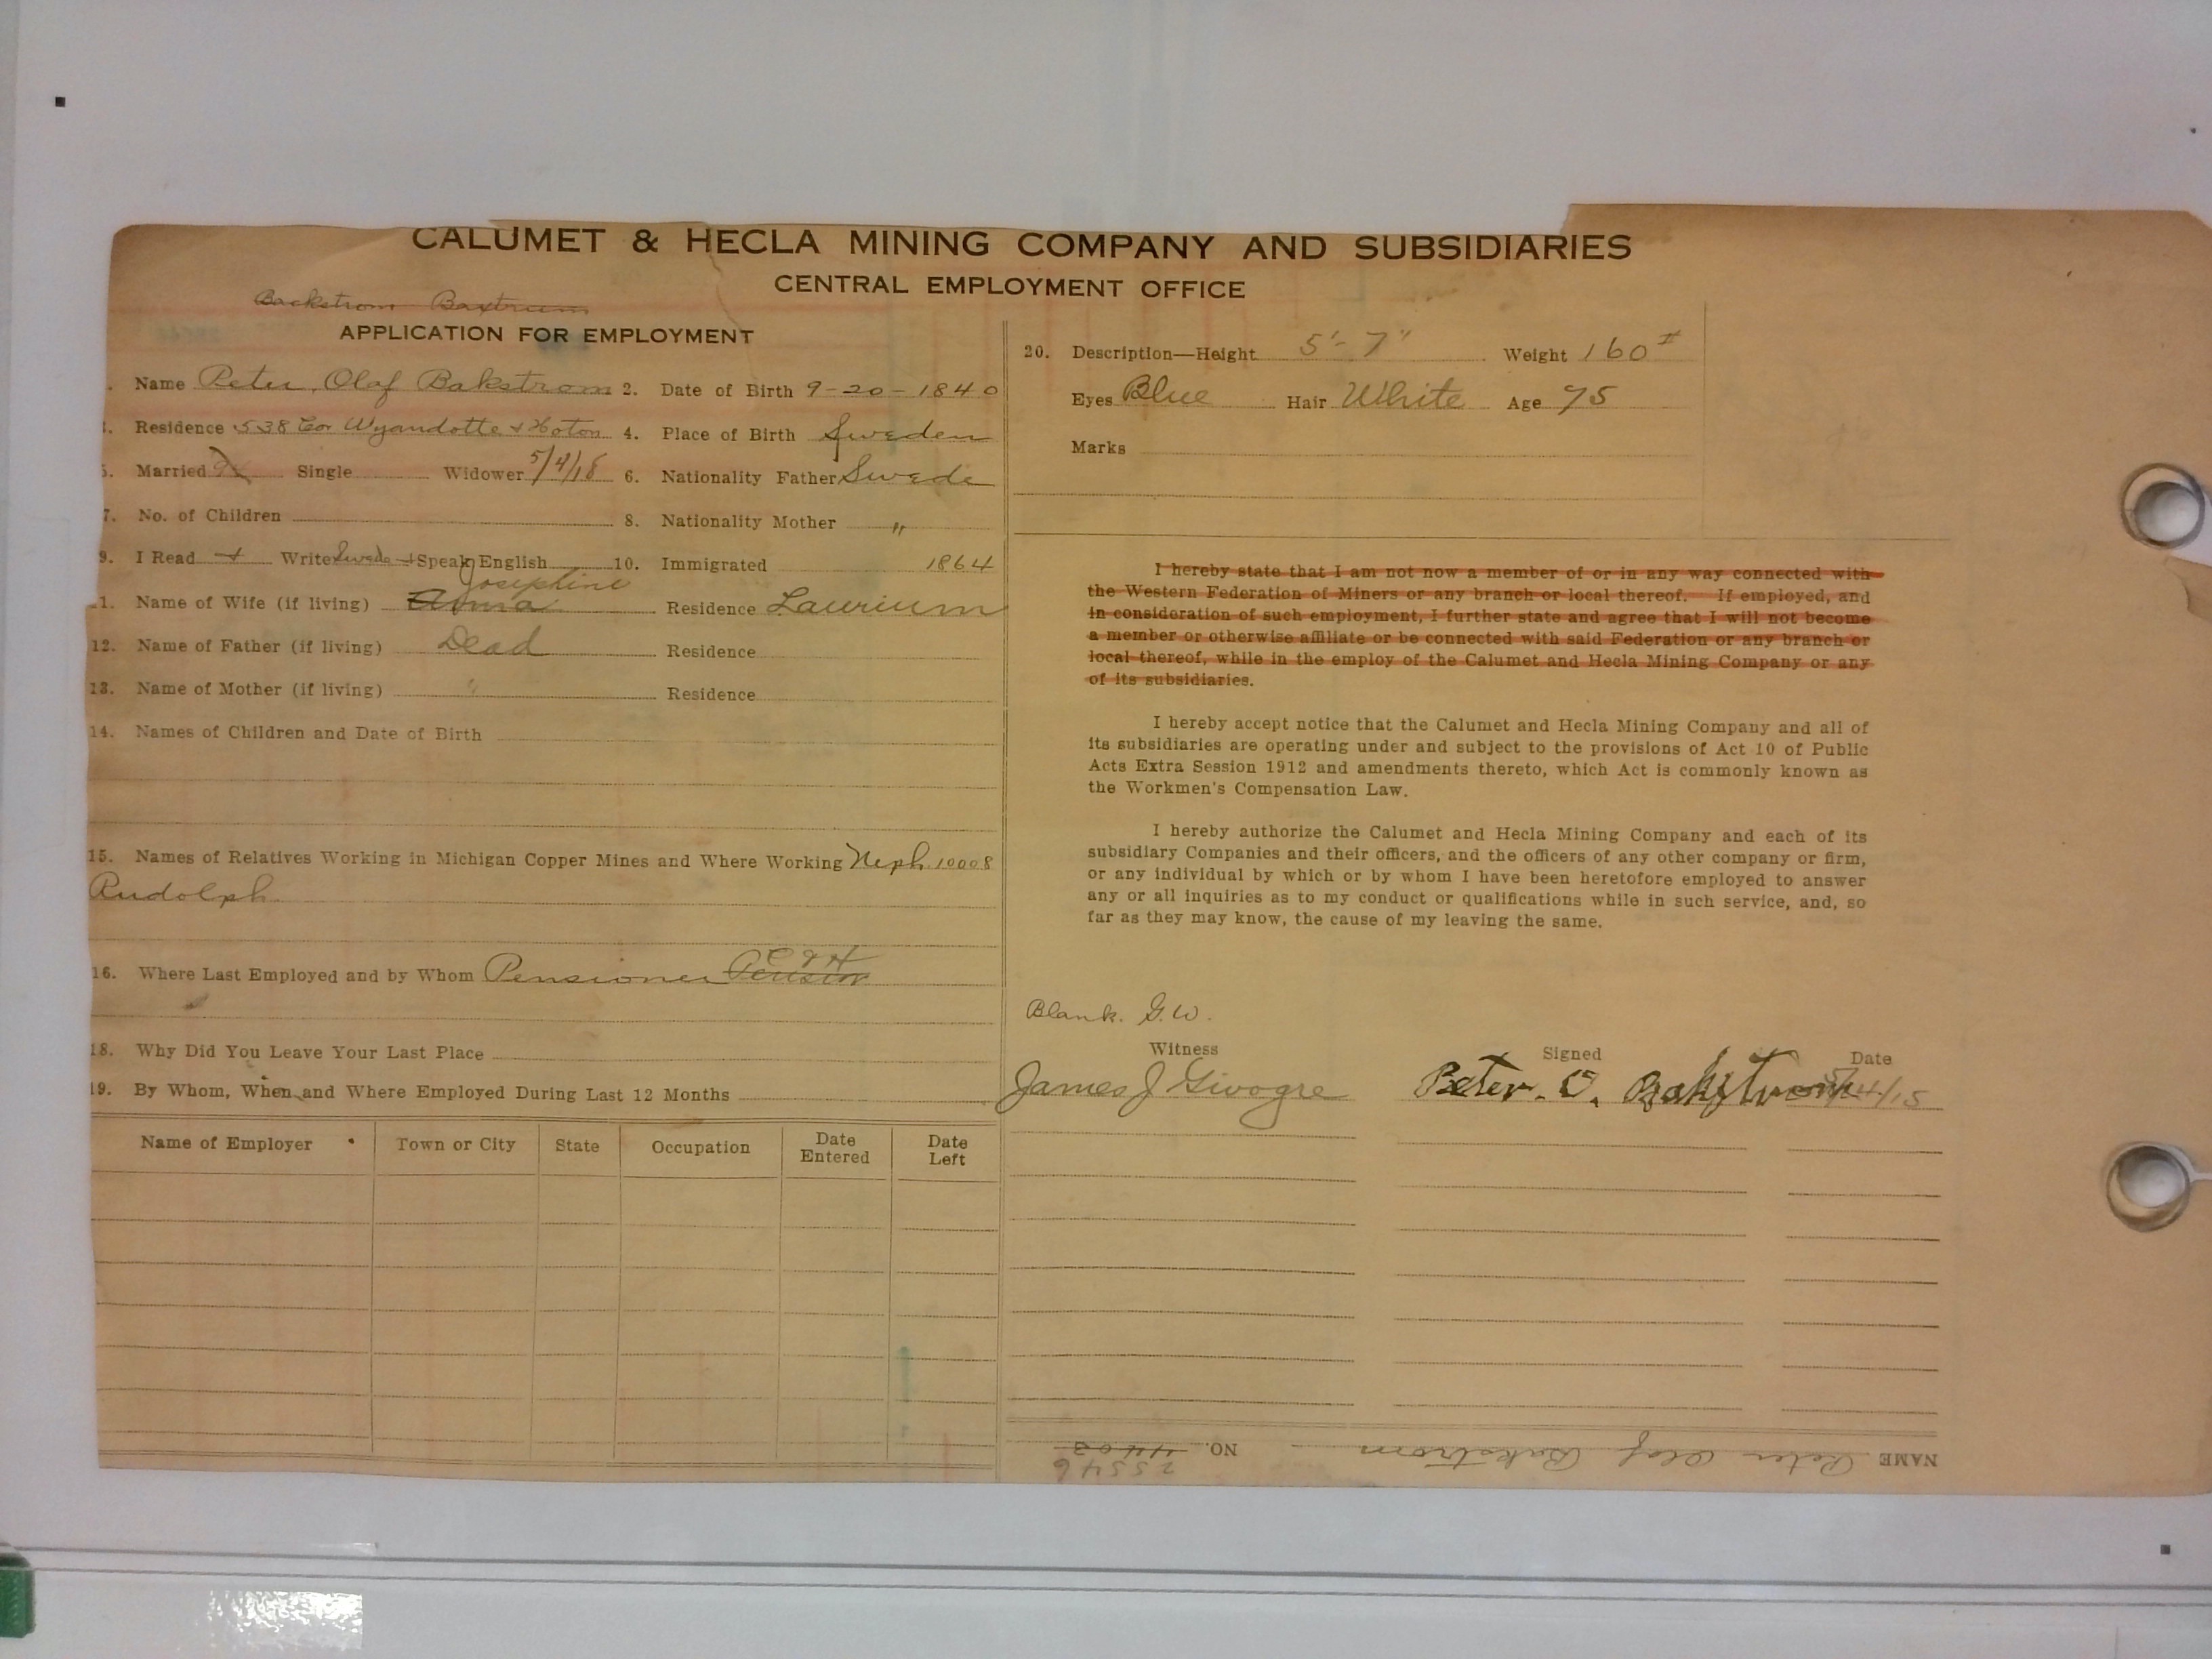 CALUMET & HECLA MINING COMPANY AND SUBSIDIARIES
CENTRAL EMPLOYMENT OFFICE
Backstrom Baxtrum
APPLICATION FOR EMPLOYMENT
Name Peter Olaf Bakstrom 2. Date of Birth 9-20-1840
Residence 538 Cor Wyandotte & 4. Place of Birth Sweden
5. Married Single Widower 5/4/18 6. Nationality Father Swede
7. No. of Children 8. Nationality Mother "
9. I Read + Write Swede + Speak English 10. Immigrated 1864
Josephine
11. Name of Wife (if living) Anna Residence Laurium
12. Name of Father (if living) Dead Residence
13. Name of Mother (if living) " Residence
14. Names of Children and Date of Birth
15. Names of Relatives Working in Michigan Copper Mines and Where Working Neph. 10008
Rudolph
C & H
16. Where Last Employed and by Whom Pensioner Pension
18. Why Did You Leave Your Last Place
19. By Whom, When and Where Employed During Last 12 Months
Name of Employer Town or City State Occupation Date Entered Date Left
20. Description—Height 5'-7" Weight 160#
Eyes Blue Hair White Age 75
Marks
I hereby state that I am not now a member of or in any way connected with
the Western Federation of Miners or any branch or local thereof. If employed, and
in consideration of such employment, I further state and agree that I will not become
a member or otherwise affiliate or be connected with said Federation or any branch or
local thereof, while in the employ of the Calumet and Hecla Mining Company or any
of its subsidiaries.
I hereby accept notice that the Calumet and Hecla Mining Company and all of
its subsidiaries are operating under and subject to the provisions of Act 10 of Public
Acts Extra Session 1912 and amendments thereto, which Act is commonly known as
the Workmen's Compensation Law.
I hereby authorize the Calumet and Hecla Mining Company and each of its
subsidiary Companies and their officers, and the officers of any other company or firm,
or any individual by which or by whom I have been heretofore employed to answer
any or all inquiries as to my conduct or qualifications while in such service, and, so
far as they may know, the cause of my leaving the same.
Blank. G.W.
Witness Signed Date
James J Givogre Peter. O. Bakstrom 5/24/15
NAME Peter Olaf Bakstrom NO. 4403
25546